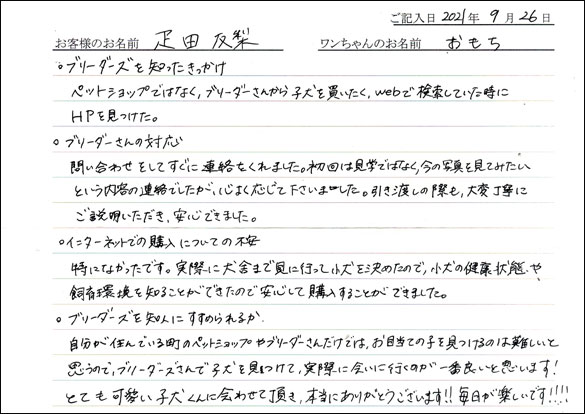 ご記入日 2021 年 9 月 26 日
お客様のお名前 疋田 友梨 ワンちゃんのお名前 おもち
○ブリーダーズを知ったきっかけ
ペットショップではなく、ブリーダーさんから子犬を買いたく、webで検索していた時に
HPを見つけた。
○ブリーダーさんの対応
問い合わせをしてすぐに連絡をくれました。初回は見学ではなく、今の写真を見てみたい
という内容の連絡でしたが、心よく応じて下さいました。引き渡しの際も、大変丁寧に
ご説明いただき、安心できました。
○インターネットでの購入についての不安
特になかったです。実際に犬舎まで見に行って小犬を決めたので、小犬の健康状態や
飼育環境を知ることができたので安心して購入することができました。
○ブリーダーズを知人にすすめられるか
自分が住んでいる町のペットショップやブリーダーさんだけでは、お目当ての子を見つけるのは難しいと
思うので、ブリーダーズさんで子犬を見つけて、実際に会いに行くのが一番良いと思います!
とても可愛い子犬くんに会わせて頂き、本当にありがとうございます!!毎日が楽しいです!!!!